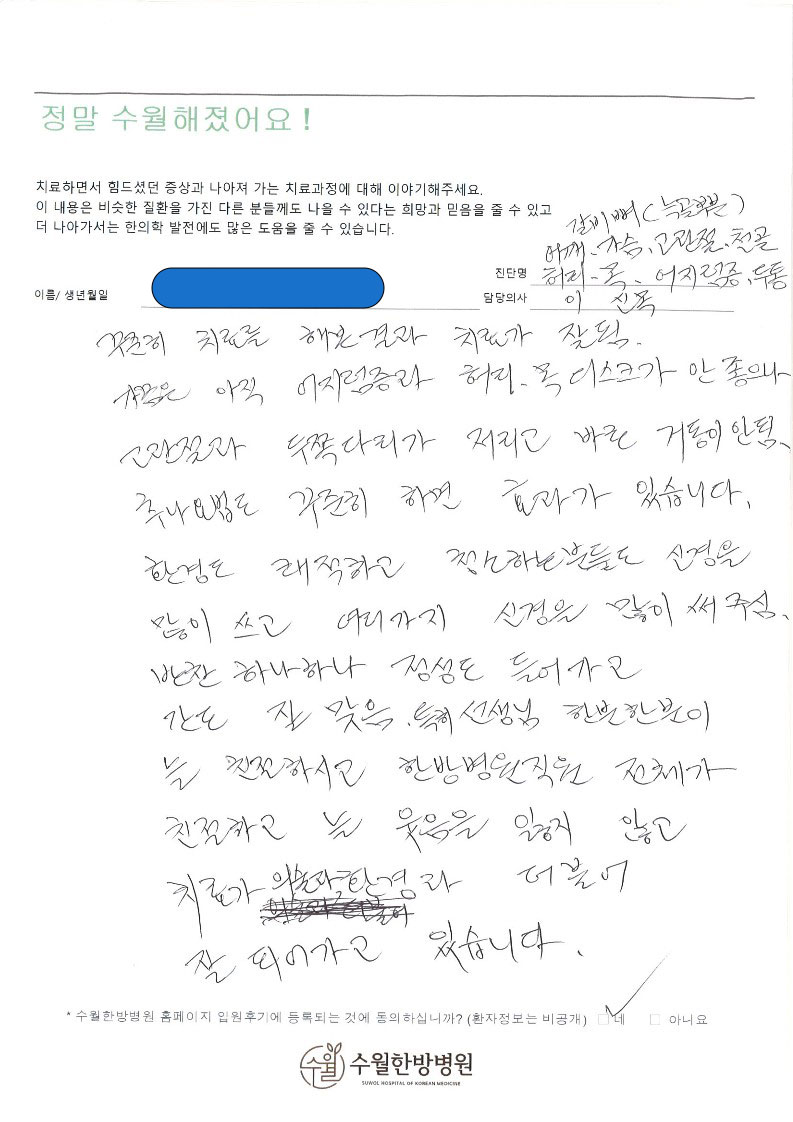 정말 수월해졌어요!
치료하면서 힘드셨던 증상과 나아져 가는 치료과정에 대해 이야기해주세요.
이 내용은 비슷한 질환을 가진 다른 분들께도 나을 수 있다는 희망과 믿음을 줄 수 있고
더 나아가서는 한의학 발전에도 많은 도움을 줄 수 있습니다.
갈비뼈(늑골부분)
어깨、가슴、고관절、천골
진단명 허리、목、어지럼증、두통
이름/ 생년월일
담당의사 이 신목
꾸준히 치료를 해본결과 치료가 잘됨.
아직 어지럼증과 허리、목디스크가 안 좋으나
고관절과 두쪽다리가 저리고 바른 거동이안됨、
추나요법도 꾸준히 하면 효과가 있습니다.
환경도 쾌적하고 청소하는분들도 신경을
많이 쓰고 여러가지 신경을 많이 써주심、
반찬 하나하나 정성도 들어가고
간도 잘 맞음、특히 선생님 한분한분이
늘 친절하시고 한방병원직원 전체가
친절하고 늘 웃음을 잃지 않고
치료가 의술과 환경과 더불어
잘 되어가고 있습니다.
* 수월한방병원 홈페이지 입원후기에 등록되는 것에 동의하십니까? (환자정보는 비공개) ☑네 □ 아니요
수월 수월한방병원
SUWOL HOSPITAL OF KOREAN MEDICINE